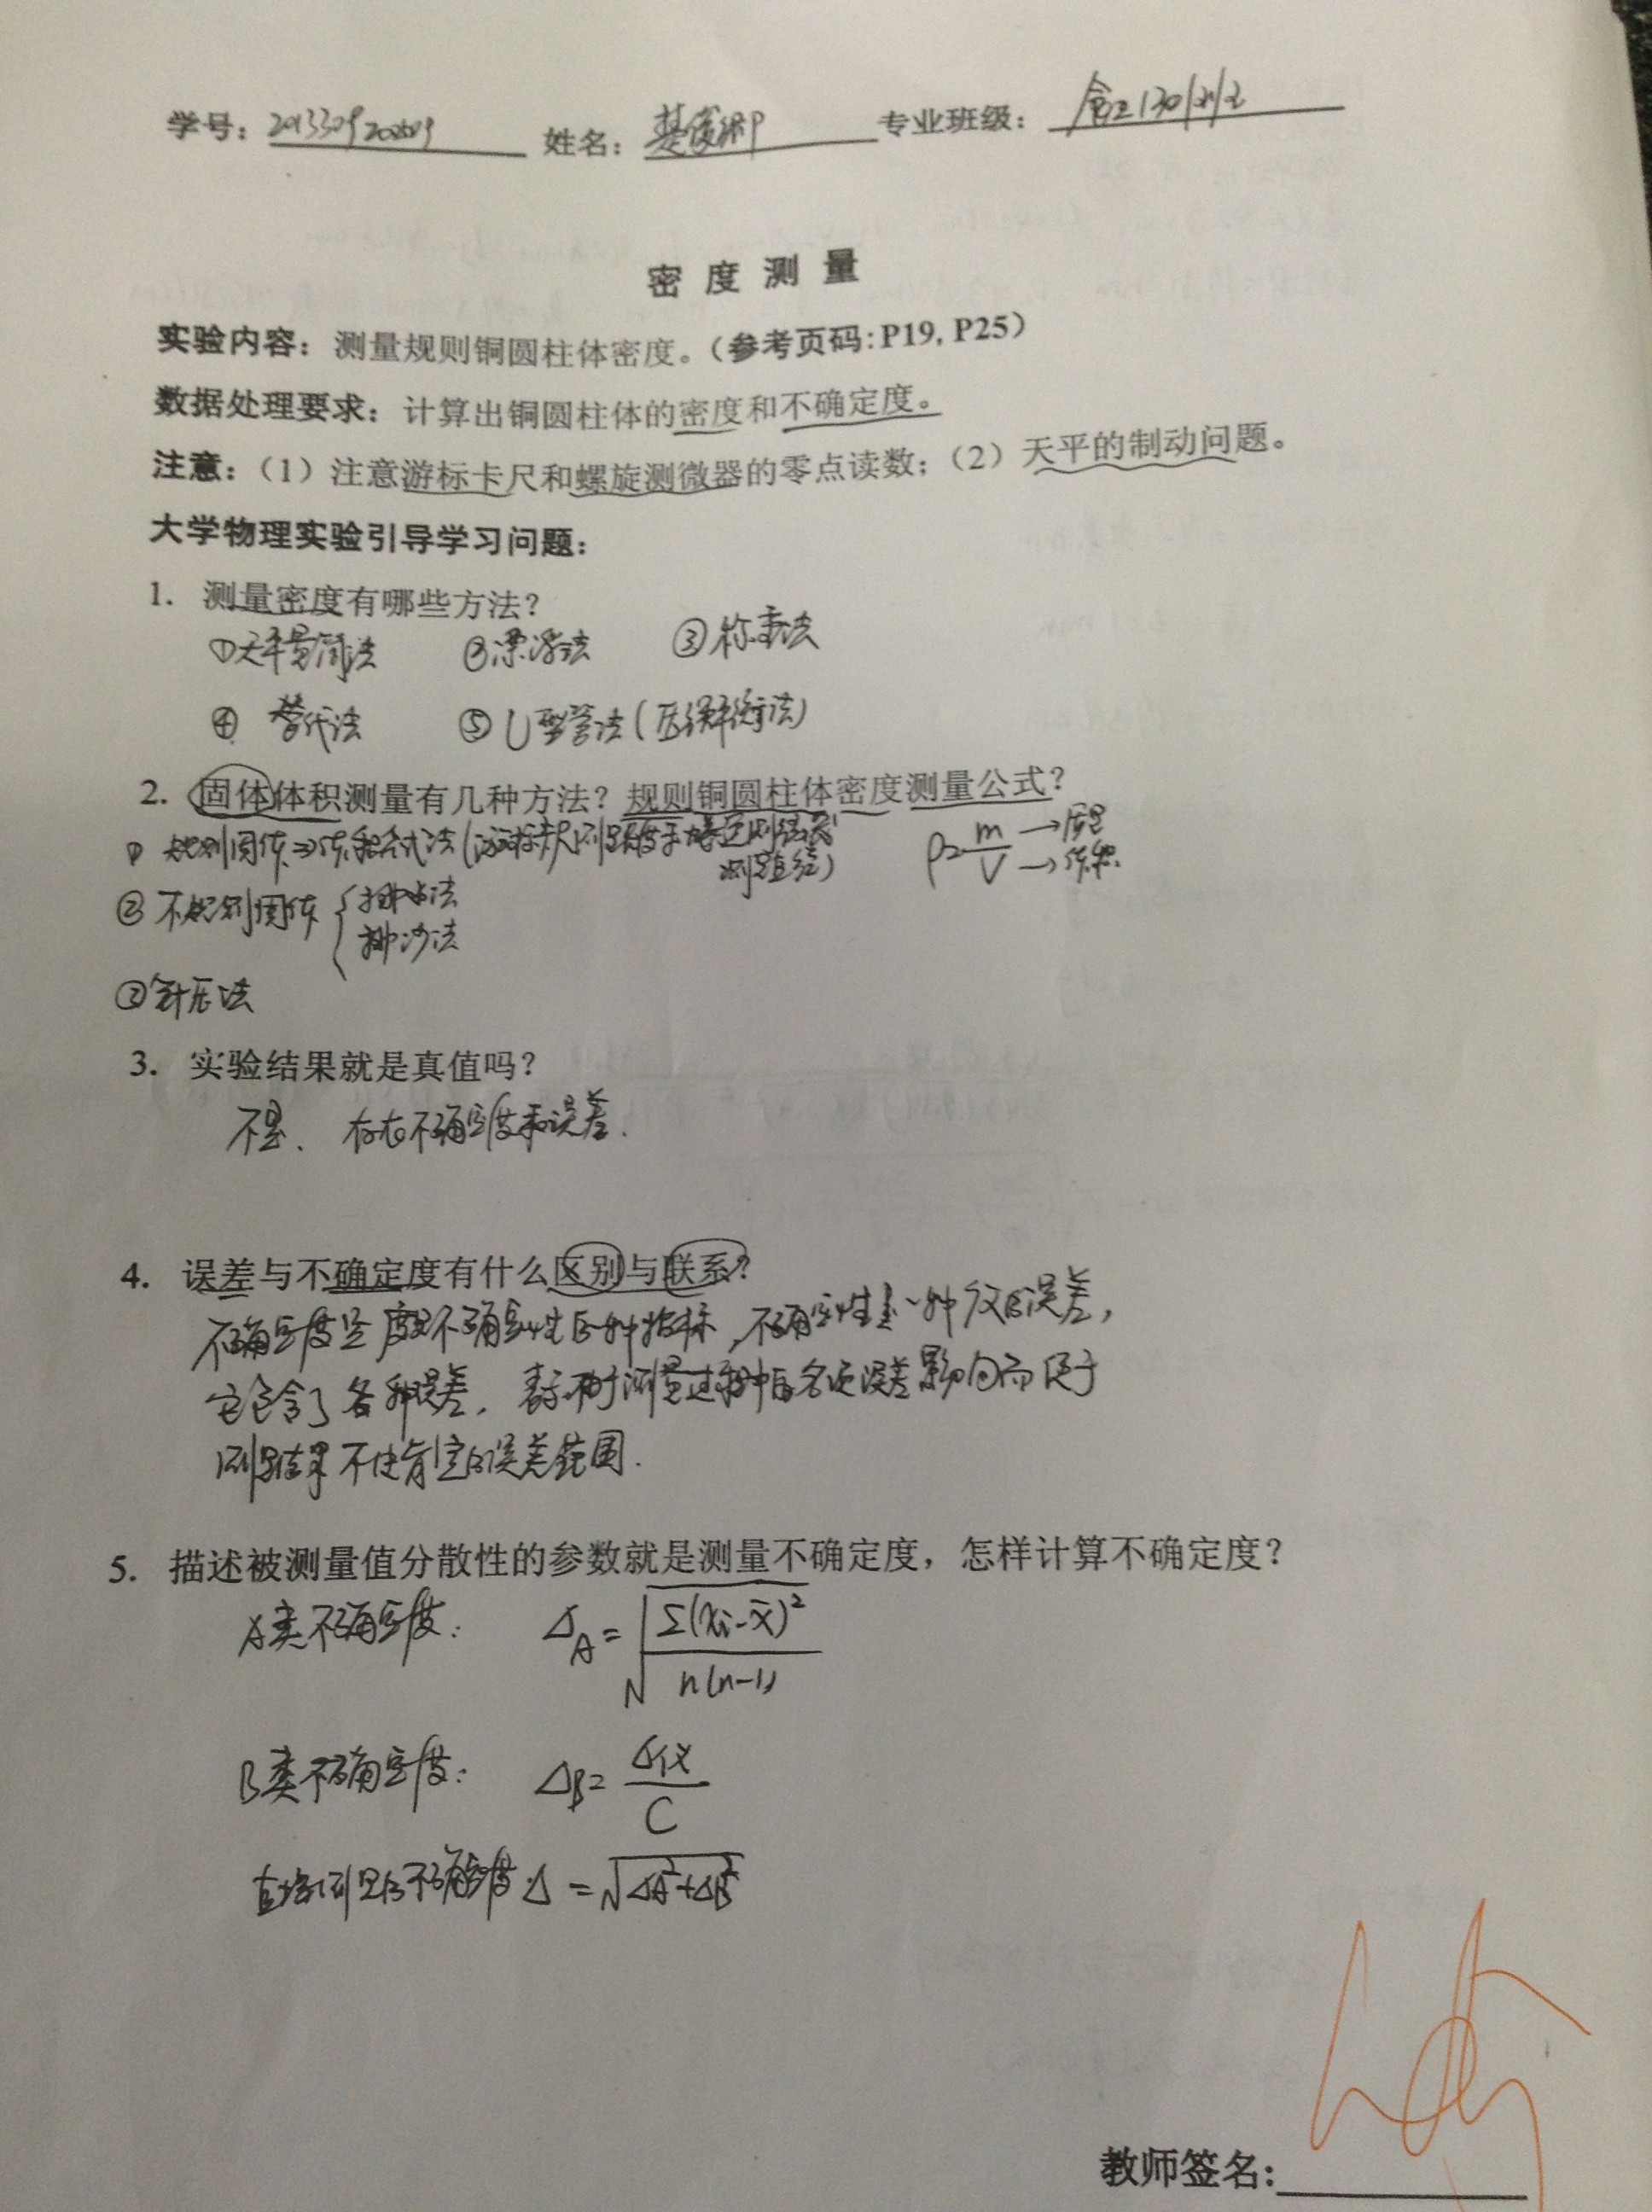 学号: 姓名: 专业班级:
密度测量
实验内容: 测量规则铜圆柱体密度。(参考页码:P19, P25)
数据处理要求: 计算出铜圆柱体的密度和不确定度。
注意: (1) 注意游标卡尺和螺旋测微器的零点读数; (2) 天平的制动问题。
大学物理实验引导学习问题:
1. 测量密度有哪些方法?
①天平量筒法 ②漂浮法 ③称重法
④ 替代法 ⑤U型管法(压强平衡法)
2. 固体体积测量有几种方法? 规则铜圆柱体密度测量公式?
① 规则固体⇒体积公式法(游标卡尺测量
测直径) ρ=m/V →质量 →体积
② 不规则固体 { 排水法
排沙法
③针压法
3. 实验结果就是真值吗?
不是. 存在不确定度和误差.
4. 误差与不确定度有什么区别与联系?
不确定度是度量不确定性的一种指标,不确定性是一种广义的误差,
它包含了各种误差, 表示由于测量过程中各项误差影响而使于
测量结果不能肯定的误差范围.
5. 描述被测量值分散性的参数就是测量不确定度, 怎样计算不确定度?
A类不确定度: Δ_A=√(Σ(xi-x̄)²/n(n-1))
B类不确定度: ΔB=Δ仪/C
直接测量的不确定度Δ=√(ΔA²+ΔB²)
教师签名: